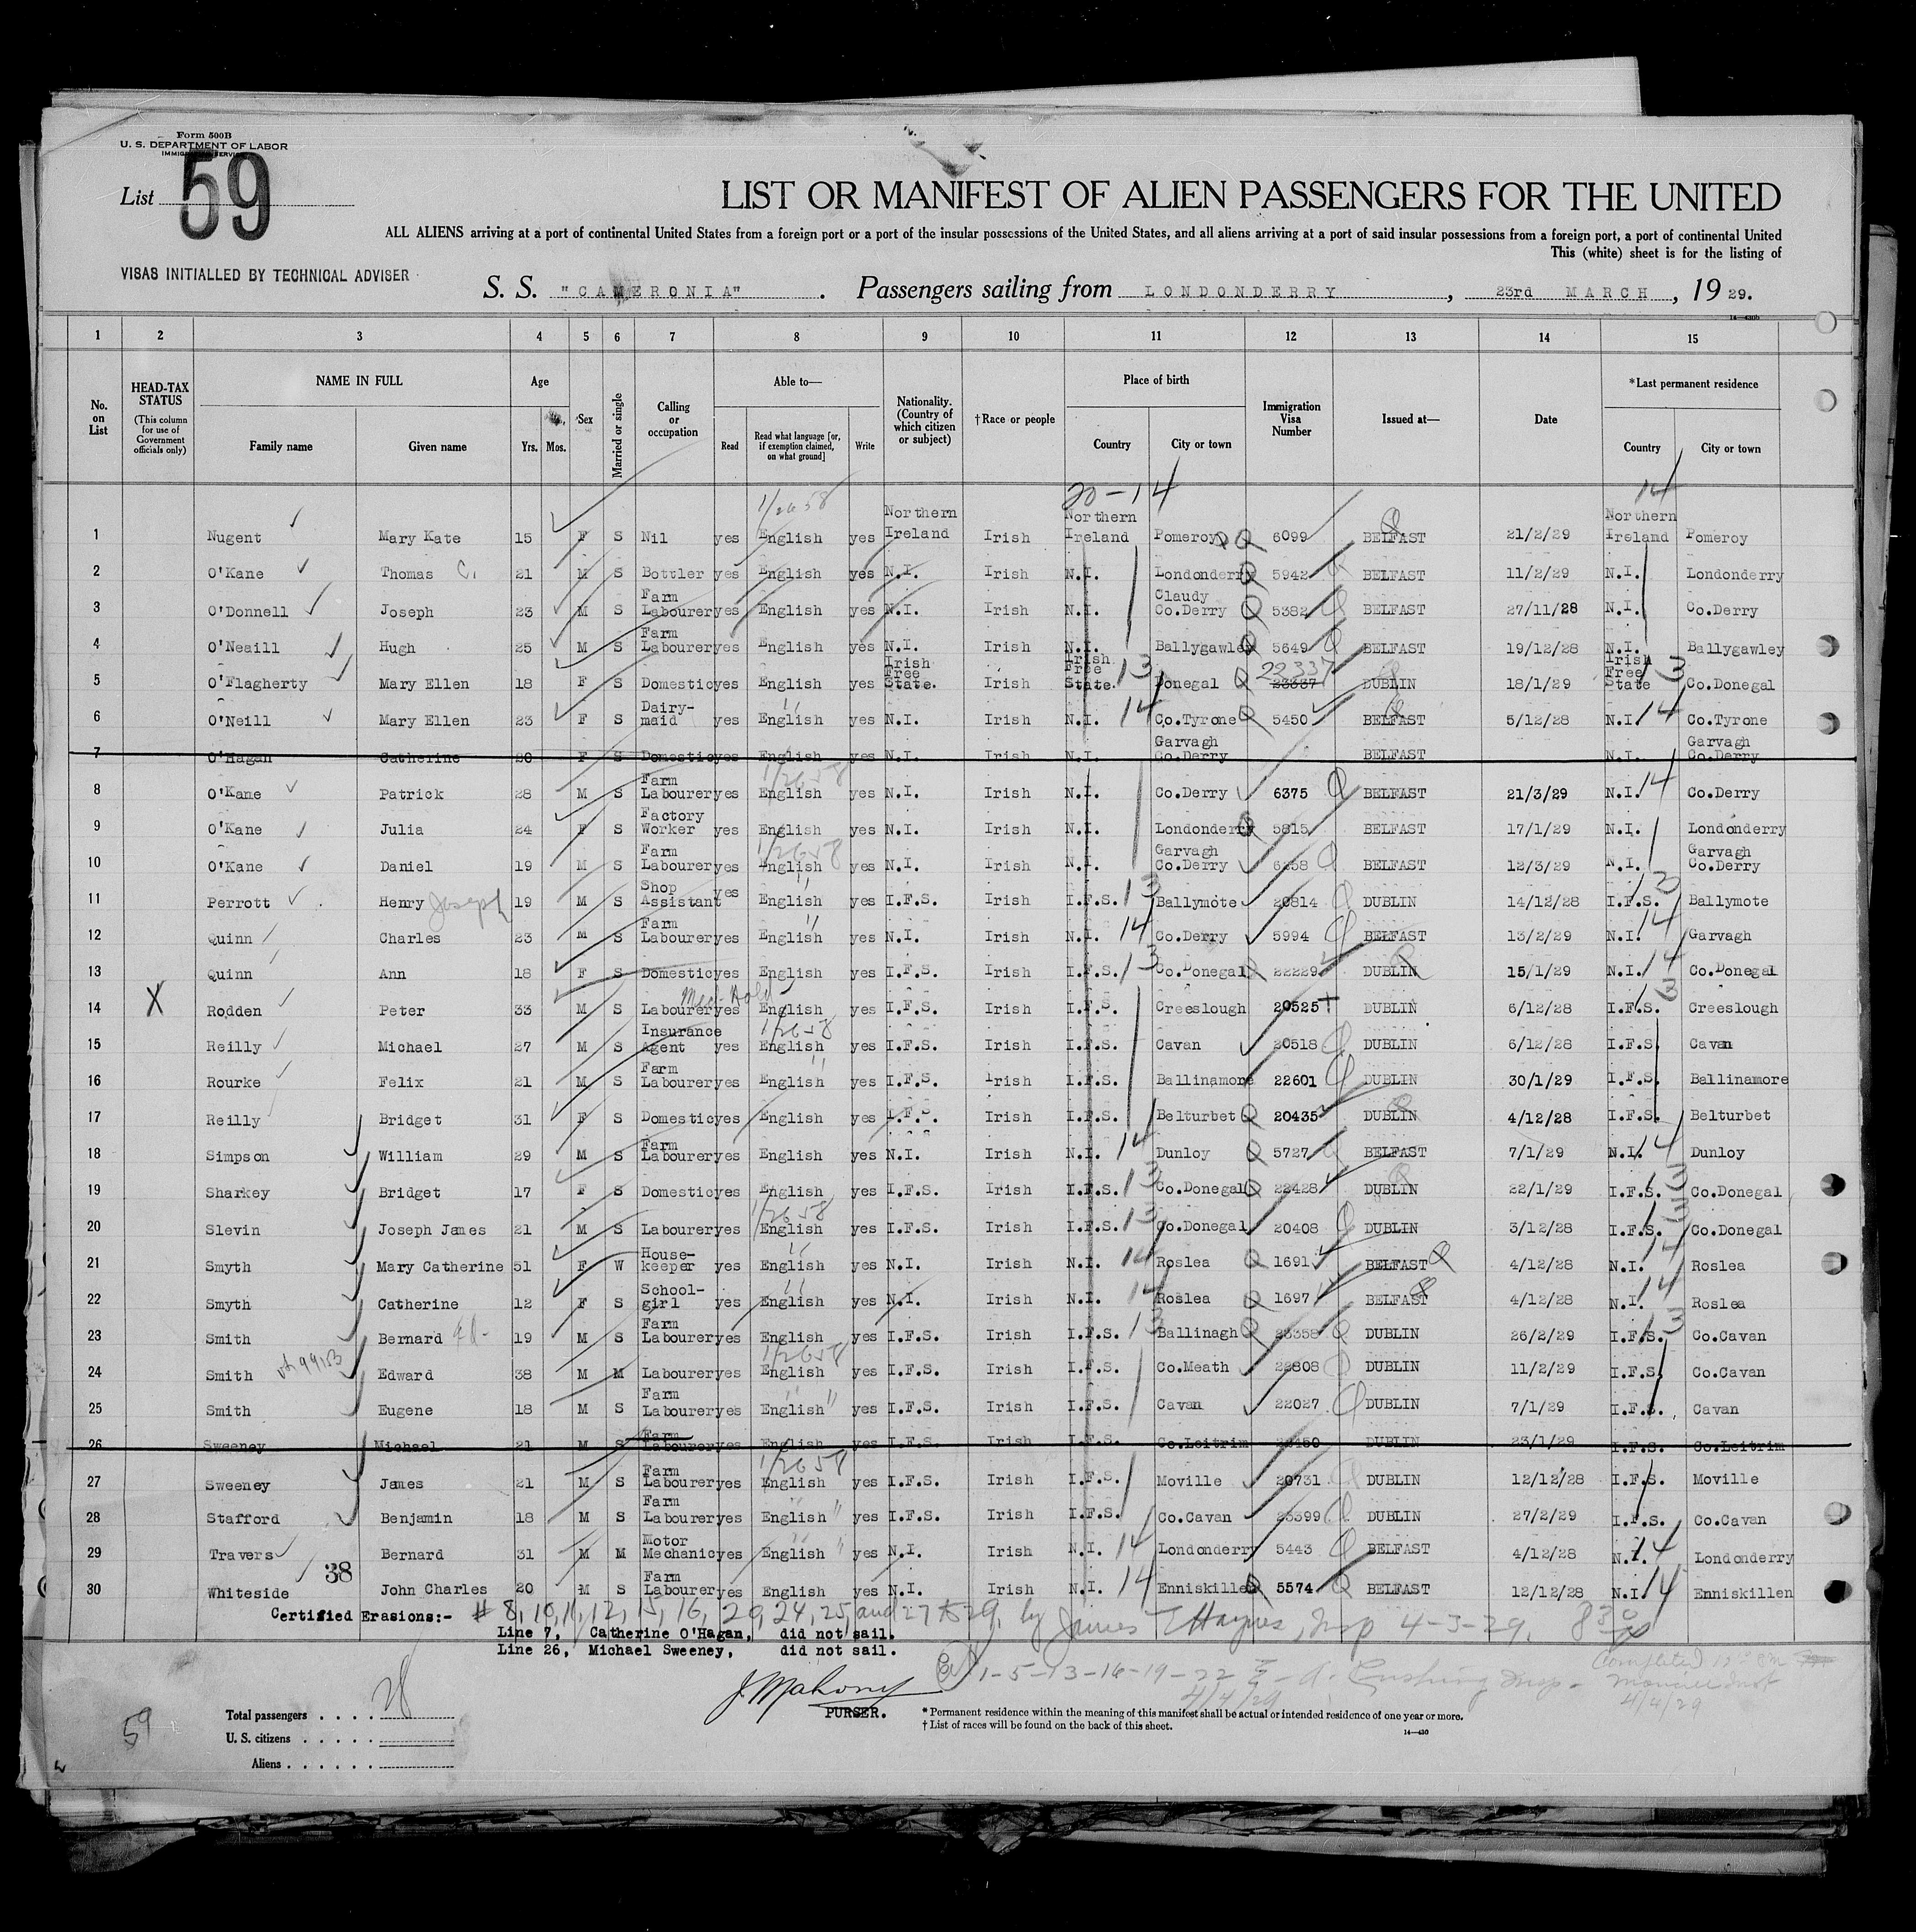 Form 500B
U. S. DEPARTMENT OF LABOR
IMMIGRATION SERVICE
List 59
LIST OR MANIFEST OF ALIEN PASSENGERS FOR THE UNITED
ALL ALIENS arriving at a port of continental United States from a foreign port or a port of the insular possessions of the United States, and all aliens arriving at a port of said insular possessions from a foreign port, a port of continental United
This (white) sheet is for the listing of
VISAS INITIALLED BY TECHNICAL ADVISER
S. S. "CAMERONIA". Passengers sailing from LONDONDERRY, 23rd MARCH, 19 29.
14—430b
1 2 3 4 5 6 7 8 9 10 11 12 13 14 15
No. on List HEAD-TAX STATUS (This column for use of Government officials only) NAME IN FULL Family name Given name Age Yrs. Mos. Sex Married or single Calling or occupation Able to— Read Read what language [or, if exemption claimed, on what ground] Write Nationality. (Country of which citizen or subject) †Race or people Place of birth Country City or town Immigration Visa Number Issued at— Date *Last permanent residence Country City or town
20-14 14
1/2658
1 Nugent Mary Kate 15 F S Nil yes English yes Northern Ireland Irish Northern Ireland Pomeroy 6099 BELFAST 21/2/29 Northern Ireland Pomeroy
2 O'Kane Thomas C. 21 M S Bottler yes English yes N.I. Irish N.I. Londonderry 5942 BELFAST 11/2/29 N.I. Londonderry
3 O'Donnell Joseph 23 M S Farm Labourer yes English yes N.I. Irish N.I. Claudy Co.Derry 5382 BELFAST 27/11/28 N.I. Co.Derry
4 O'Neaill Hugh 25 M S Farm Labourer yes English yes N.I. Irish N.I. Ballygawley 5649 BELFAST 19/12/28 N.I. Ballygawley
5 O'Flagherty Mary Ellen 18 F S Domestic yes English yes Irish Free State. Irish Irish Free State. 13 Donegal 22337 23337 DUBLIN 18/1/29 Irish Free State 13 Co.Donegal
6 O'Neill Mary Ellen 23 F S Dairy-maid yes English yes N.I. Irish N.I. 14 Co.Tyrone 5450 BELFAST 5/12/28 N.I. 14 Co.Tyrone
7 O'Hagan Catherine 20 F S Domestic yes English yes N.I. Irish N.I. Garvagh Co.Derry BELFAST N.I. Garvagh Co.Derry
8 O'Kane Patrick 28 M S Farm Labourer yes English 1/2658 yes N.I. Irish N.I. Co.Derry 6375 BELFAST 21/3/29 N.I. 14 Co.Derry
9 O'Kane Julia 24 F S Factory Worker yes English yes N.I. Irish N.I. Londonderry 5815 BELFAST 17/1/29 N.I. Londonderry
10 O'Kane Daniel 19 M S Farm Labourer yes English 1/2658 yes N.I. Irish N.I. Garvagh Co.Derry 6258 BELFAST 12/3/29 N.I. Garvagh Co.Derry
11 Perrott Henry Joseph 19 M S Shop Assistant yes English yes I.F.S. Irish I.F.S. 13 Ballymote 20814 DUBLIN 14/12/28 I.F.S. 13 Ballymote
12 Quinn Charles 23 M S Farm Labourer yes English yes N.I. Irish N.I. 14 Co.Derry 5994 BELFAST 13/2/29 N.I. 14 Garvagh
13 Quinn Ann 18 F S Domestic yes English yes I.F.S. Irish I.F.S. 13 Co.Donegal 22229 DUBLIN 15/1/29 N.I. 14 Co.Donegal
14 X Rodden Peter 33 M S Labourer yes Med. Hold English yes I.F.S. Irish I.F.S. Creeslough 20525 DUBLIN 6/12/28 I.F.S. 13 Creeslough
15 Reilly Michael 27 M S Insurance Agent yes English 1/2658 yes I.F.S. Irish I.F.S. Cavan 20518 DUBLIN 6/12/28 I.F.S. Cavan
16 Rourke Felix 21 M S Farm Labourer yes English yes I.F.S. Irish I.F.S. Ballinamore 22601 DUBLIN 30/1/29 I.F.S. Ballinamore
17 Reilly Bridget 31 F S Domestic yes English yes I.F.S. Irish I.F.S. Belturbet 20435 DUBLIN 4/12/28 I.F.S. Belturbet
18 Simpson William 29 M S Farm Labourer yes English yes N.I. Irish N.I. 14 Dunloy 5727 BELFAST 7/1/29 N.I. 14 Dunloy
19 Sharkey Bridget 17 F S Domestic yes English yes I.F.S. Irish I.F.S. 13 Co.Donegal 22428 DUBLIN 22/1/29 I.F.S. 13 Co.Donegal
20 Slevin Joseph James 21 M S Labourer yes English 1/2658 yes I.F.S. Irish I.F.S. 13 Co.Donegal 20408 DUBLIN 3/12/28 I.F.S. 13 Co.Donegal
21 Smyth Mary Catherine 51 F W House-keeper yes English yes N.I. Irish N.I. 14 Roslea 1691 BELFAST 4/12/28 N.I. 14 Roslea
22 Smyth Catherine 12 F S School-girl yes English yes N.I. Irish N.I. 14 Roslea 1697 BELFAST 4/12/28 N.I. 14 Roslea
23 Smith Bernard 19 M S Farm Labourer yes English yes I.F.S. Irish I.F.S. 13 Ballinagh 23358 DUBLIN 26/2/29 I.F.S. 13 Co.Cavan
24 Smith Edward 38 M M Labourer yes English 1/2658 yes I.F.S. Irish I.F.S. Co.Meath 22808 DUBLIN 11/2/29 I.F.S. Co.Cavan
25 Smith Eugene 18 M S Farm Labourer yes English yes I.F.S. Irish I.F.S. Cavan 22027 DUBLIN 7/1/29 I.F.S. Cavan
26 Sweeney Michael 21 M S Farm Labourer yes English yes I.F.S. Irish I.F.S. Co.Leitrim DUBLIN 23/1/29 I.F.S. Co.Leitrim
27 Sweeney James 21 M S Farm Labourer yes English 1/2658 yes I.F.S. Irish I.F.S. Moville 20731 DUBLIN 12/12/28 I.F.S. Moville
28 Stafford Benjamin 18 M S Farm Labourer yes English yes I.F.S. Irish I.F.S. Co.Cavan 23399 DUBLIN 27/2/29 I.F.S. Co.Cavan
29 Travers Bernard 31 M M Motor Mechanic yes English yes N.I. Irish N.I. 14 Londonderry 5443 BELFAST 4/12/28 N.I. 14 Londonderry
30 Whiteside 38 John Charles 20 M S Farm Labourer yes English yes N.I. Irish N.I. 14 Enniskillen 5574 BELFAST 12/12/28 N.I. 14 Enniskillen
Certified Erasions:- # 8, 10, 11, 12, 15, 16, 20, 24, 25, and 27 to 29, by James T Haynes, Insp 4-3-29.
Line 7, Catherine O'Hagan, did not sail.
Line 26, Michael Sweeney, did not sail.
1-5-13-16-19-22
4/4/29
4/4/29
J Mahony
PURSER.
59
Total passengers . . . . 28
U. S. citizens . . . . . .
Aliens . . . . . .
* Permanent residence within the meaning of this manifest shall be actual or intended residence of one year or more.
† List of races will be found on the back of this sheet.
14—430